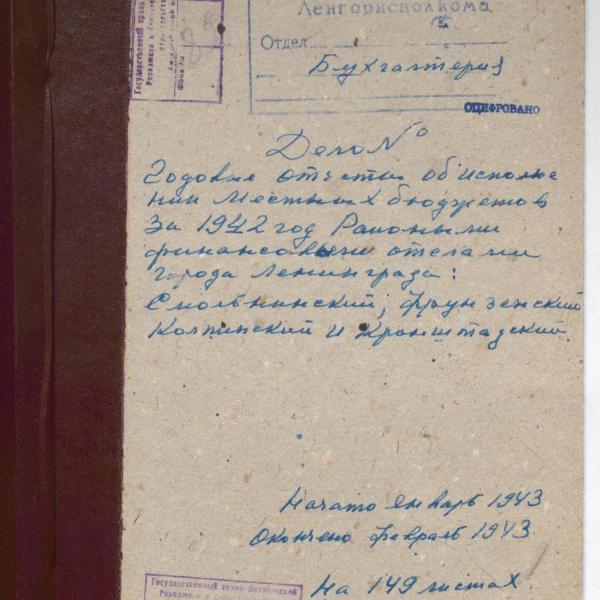 Государственный архив
Революции и
строительства
Фонд №
Ленгорисполкома
Отдел
Бухгалтерия
ОЦИФРОВАНО
Дело №
Годовые отчеты об исполне
нии местных бюджетов
за 1942 год Райоными
финансовыми отделами
города Ленинграда:
Смольнинский, Фрунзенский
Колпинский и Кронштадский.
Начато январь 1943
Окончено февраль 1943.
На 149 листах.
Государственный архив Октябрьской
Революции и